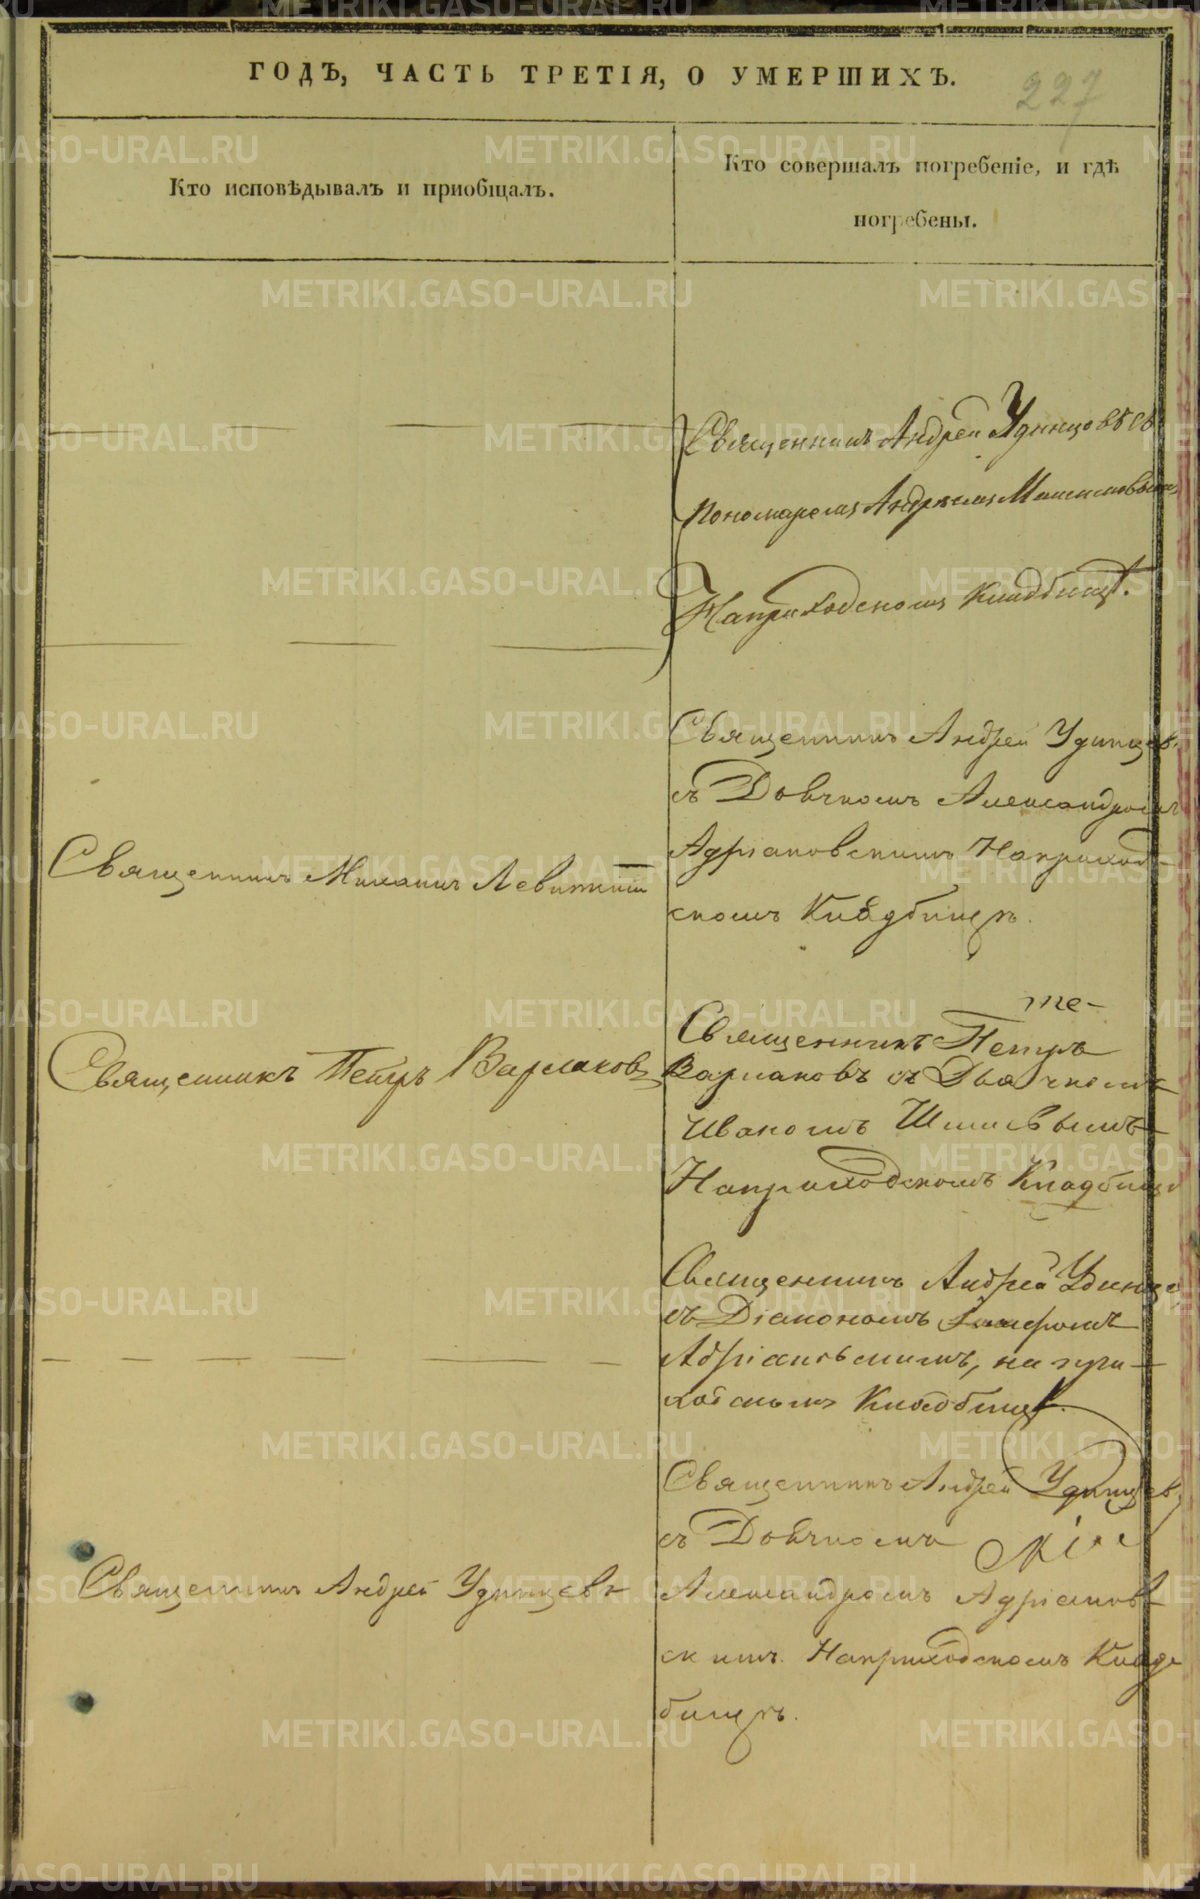 ГОДЪ, ЧАСТЬ ТРЕТІЯ, О УМЕРШИХЪ.
227
Кто исповѣдывалъ и пріобщалъ.
Кто совершалъ погребеніе, и гдѣ
погребены.
Священникъ Андрей Удинцовъ съ
пономаремъ Андреемъ
На приходскомъ кладбищѣ.
Священникъ Андрей Удинцевъ
съ Дьячкомъ Александромъ
Адріановскимъ На приход
скомъ Кладбищѣ.
Священникъ Михаилъ Левитскій
те-
Священникъ Петръ
Варлаковъ съ Дьячкомъ
Иваномъ
На приходскомъ Кладбищѣ
Священникъ Петръ Варлаковъ
Священникъ Андрей Удинце
съ Діакономъ
Адріановскимъ, на при-
ходскомъ Кладбищѣ.
Священникъ Андрей Удинцевъ
съ Дьячкомъ
Александромъ Адріанов
скимъ На приходскомъ Клад
бищѣ.
Священникъ Андрей Удинцевъ
METRIKI.GASO-URAL.RU